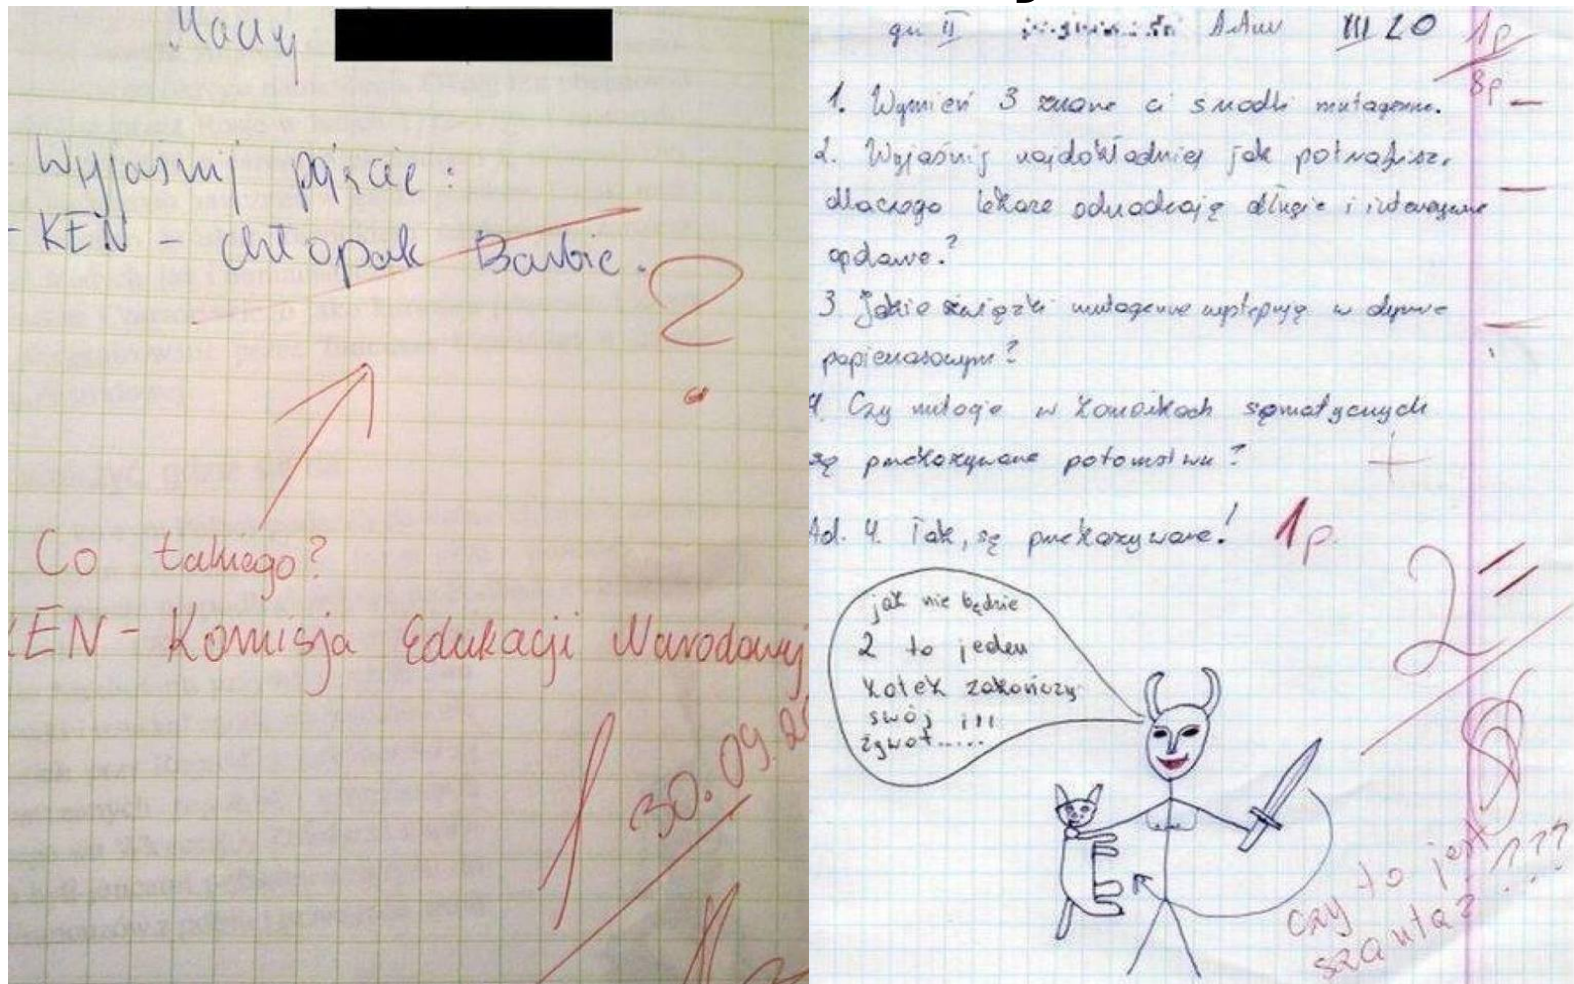 Wyjaśnij pojęcie:
- KEN - chłopak Barbie.
?
Co takiego?
KEN - Komisja Edukacji Narodowej
1
30.09.
gr II III 20
1p
8p
1. Wymień 3 znane ci środki mutagenne.
2. Wyjaśnij najdokładniej jak potrafisz,
dlaczego lekarze odradzają długie i intensywne
opalanie?
3 Jakie związki mutagenne występują w dymie
papierosowym?
4. Czy mutacje w komórkach somatycznych
są przekazywane potomstwu?
+
Ad. 4. Tak, są przekazywane! 1p.
2=
jak nie będzie
2 to jeden
kotek zakończy
swój !!!
żywot.....
Czy to jest
szantaż????